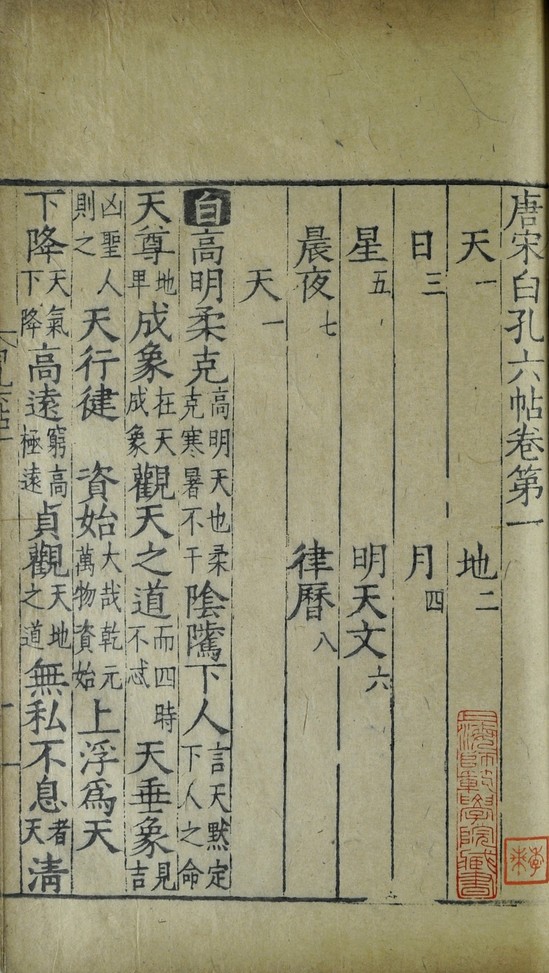 唐宋白孔六帖卷第一
天一 地二
日三 月四
星五 明天文六
晨夜七 律曆八
天一
白高明柔克高明天也柔克寒暑不干陰騭下人言天默定下人之命
天尊地卑成象在天成象觀天之道而四時不忒天垂象見吉
凶聖人則之天行健 資始大哉乾元萬物資始上浮爲天
下降天氣下降高遠窮高極遠貞觀天地之道無私不息者天清
上海師範學院藏書